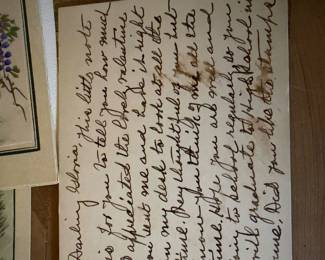 Darling Gloria, This little note
is for you to tell you how much
I appreciated the lovely valentine
you sent me and have it right
on my desk to look at all the
time. Very thoughtful of you but
know you think of me all the
time. Hope you are well and
going to school regularly so you
will graduate to high school in
June. Did you like the stamps